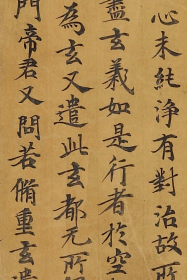 心未純淨有對治故所
盡玄義如是行者於空
為玄又遣此玄都无所
門帝君又問若脩重玄